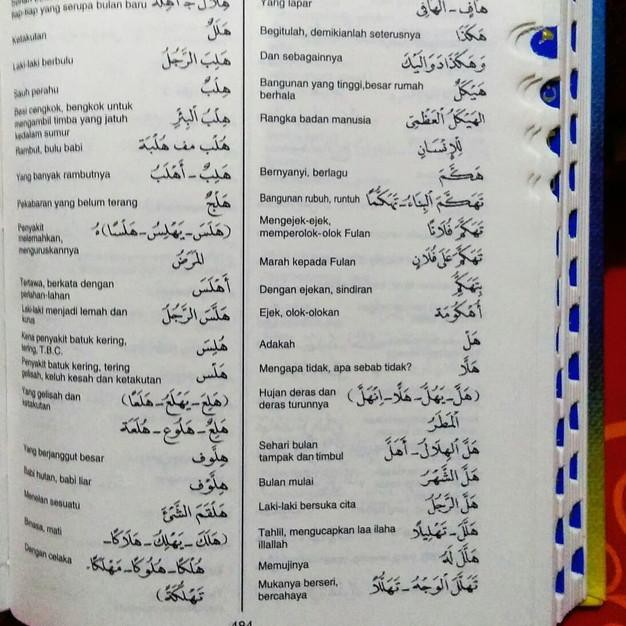 Yang lapar هَافٍ - الهَافِي
Begitulah, demikianlah seterusnya هٰكَذَا
Dan sebagainya وَهٰكَذَا دَوَالَيْكَ
Bangunan yang tinggi,besar rumah هَيْكَلٌ
berhala
Rangka badan manusia الهَيْكَلُ العَظْمِيّ
لِلإِنْسَانِ
Bernyanyi, berlagu هَكَّمَ
Bangunan rubuh, runtuh تَهَكَّمَ البِنَاءُ - تَهَكُّمًا
Mengejek-ejek, تَهَكَّمَ فُلَانًا
memperolok-olok Fulan
Marah kepada Fulan تَهَكَّمَ عَلَى فُلَانٍ
Dengan ejekan, sindiran بِتَهَكُّمٍ
Ejek, olok-olokan أُهْكُومَة
Adakah هَلْ
Mengapa tidak, apa sebab tidak? هَلَّا
Hujan deras dan (هَلَّ - يَهُلُّ - هَلًّا - اِنْهَلَّ)
deras turunnya المَطَرُ
Sehari bulan هَلَّ الهِلَالُ - أَهَلَّ
tampak dan timbul
Bulan mulai هَلَّ الشَّهْرُ
Laki-laki bersuka cita هَلَّ الرَّجُلُ
Tahlil, mengucapkan laa ilaha هَلَّلَ - تَهْلِيلًا
illallah
Memujinya هَلَّلَ لَهُ
Mukanya berseri, تَهَلَّلَ الوَجْهُ - تَهَلُّلًا
bercahaya
tiap-tiap yang serupa bulan baru هِلَالٌ ج أَهِلَّة
Ketakutan هَلَلٌ
Laki-laki berbulu هَلِبَ الرَّجُلُ
Sauh perahu هِلَبٌ
Besi cengkok, bengkok untuk هِلَبُ البِئْرِ
mengambil timba yang jatuh
kedalam sumur
Rambut, bulu babi هُلْب مف هُلْبَة
Yang banyak rambutnya هَلِبٌ - أَهْلَبُ
Pekabaran yang belum terang هَلْجٌ
Penyakit (هَلَسَ - يَهْلِسُ - هَلْسًا) هُ
melemahkan,
menguruskannya المَرَضُ
Tertawa, berkata dengan أَهْلَسَ
perlahan-lahan
Laki-laki menjadi lemah dan هَلَّسَ الرَّجُلُ
kurus
Kena penyakit batuk kering, هُلِسَ
tering, T.B.C.
Penyakit batuk kering, tering هَلْس
gelisah, keluh kesah dan ketakutan
Yang gelisah dan (هَلِعَ - يَهْلَعُ - هَلَعًا)
ketakutan هَلِعٌ - هَلُوع - هُلَعَة
Yang berjanggut besar هِلَّوْف
Babi hutan, babi liar هِلَّوْف
Menelan sesuatu هَلْقَمَ الشَّيْءَ
Binasa, mati (هَلَكَ - يَهْلِكُ - هَلَاكًا -
Dengan celaka هُلْكًا - هُلُوكًا - مَهْلَكًا -
تَهْلُكَةً)